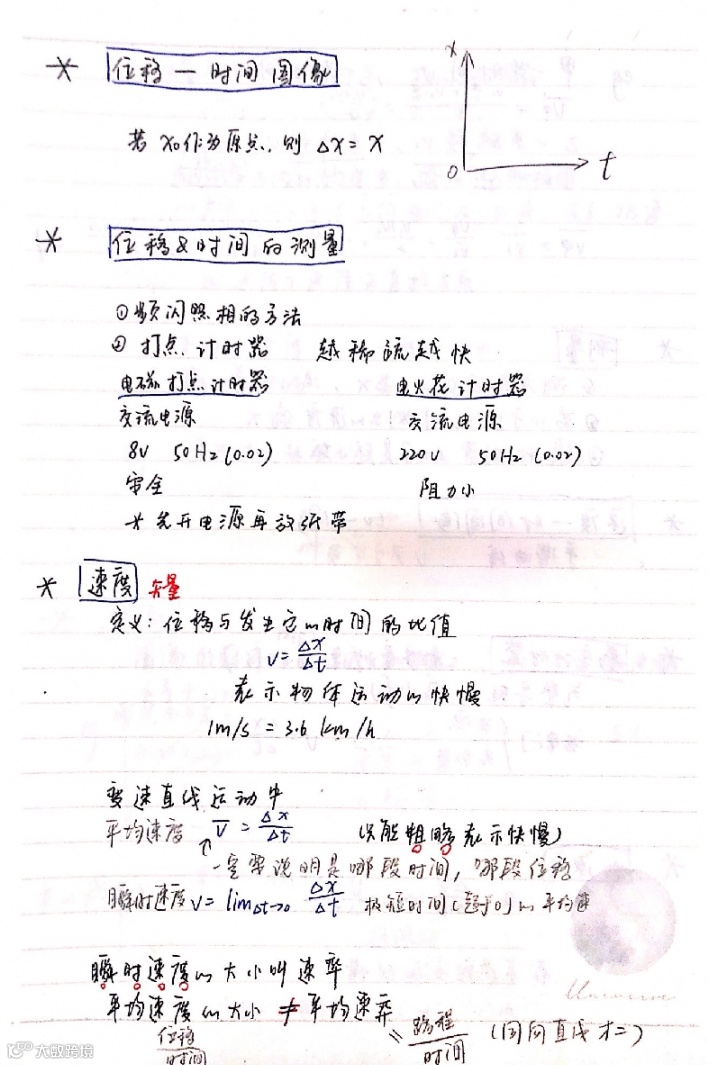 * 位移一时间图像
x
若 x₀作为原点, 则 Δx = x
0 t
* 位移&时间的测量
①频闪照相的方法
② 打点计时器 越稀疏越快
电磁打点计时器 电火花计时器
交流电源 交流电源
8V 50Hz(0.02) 220V 50Hz (0.02)
安全 阻力小
*先开电源再放纸带
* 速度 矢量
定义: 位移与发生它的时间的比值
v = Δx/Δt
表示物体运动的快慢
1m/s = 3.6 km/h
变速直线运动中
平均速度 v̅ = Δx/Δt (只能粗略表示快慢)
一定要说明是哪段时间, 哪段位移
瞬时速度 v = lim Δt→0 Δx/Δt 极短时间(趋于0)的平均速
瞬时速度的大小叫速率
平均速度的大小 ≠ 平均速率
位移/时间 路程/时间 (同向直线才=)
大数跨境